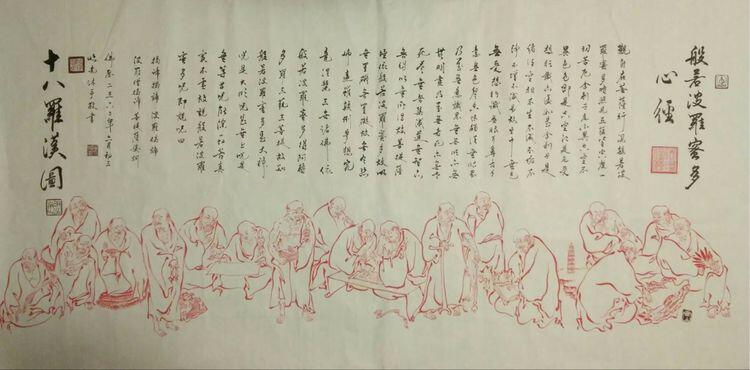 般若波羅蜜多
心經
觀自在菩薩行深般若波
羅蜜多時照見五蘊皆空度一
切苦厄舍利子色不異空空不
異色色即是空空即是色受
想行識亦復如是舍利子是
諸法空相不生不滅不垢不
淨不增不減是故空中無色
無受想行識無眼耳鼻舌身
意無色聲香味觸法無眼界
乃至無意識界無無明亦無
無明盡乃至無老死亦無老
死盡無苦集滅道無智亦
無得以無所得故菩提薩
埵依般若波羅蜜多故心
無罣礙無罣礙故無有恐
怖遠離顛倒夢想究
竟涅槃三世諸佛依
般若波羅蜜多故得阿耨
多羅三藐三菩提故知
般若波羅蜜多是大神
咒是大明咒是無上咒是
無等等咒能除一切苦真
實不虛故說般若波羅
蜜多咒即說咒曰
揭諦揭諦 波羅揭諦
波羅僧揭諦 菩提薩婆訶
年六月初三
敬書
十八羅漢圖